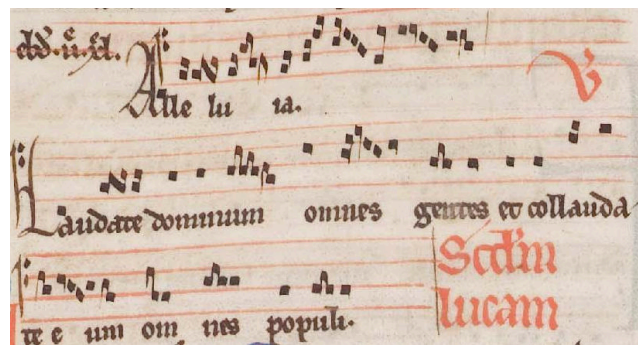 Alle lu ia. V
Laudate dominum omnes gentes et collauda
te e um om nes populi. Scdm
lucam